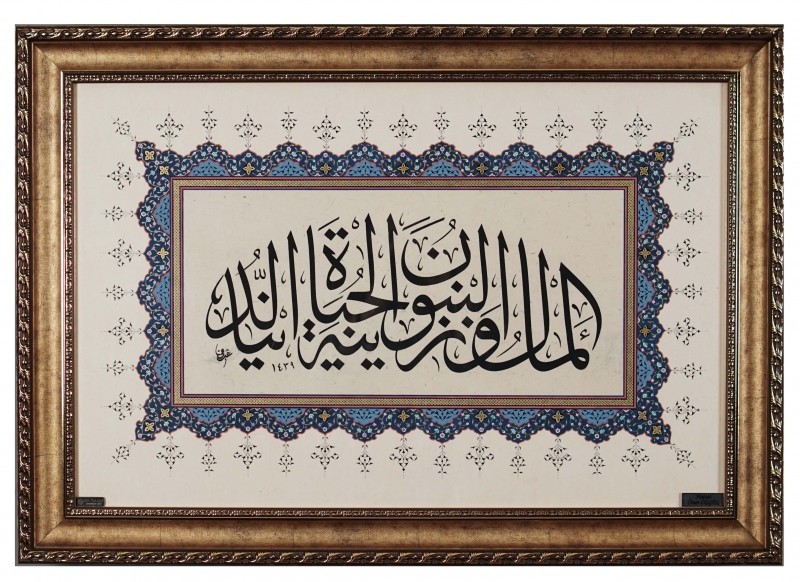 المال والبنون زينة الحياة الدنيا
١٤٣٩